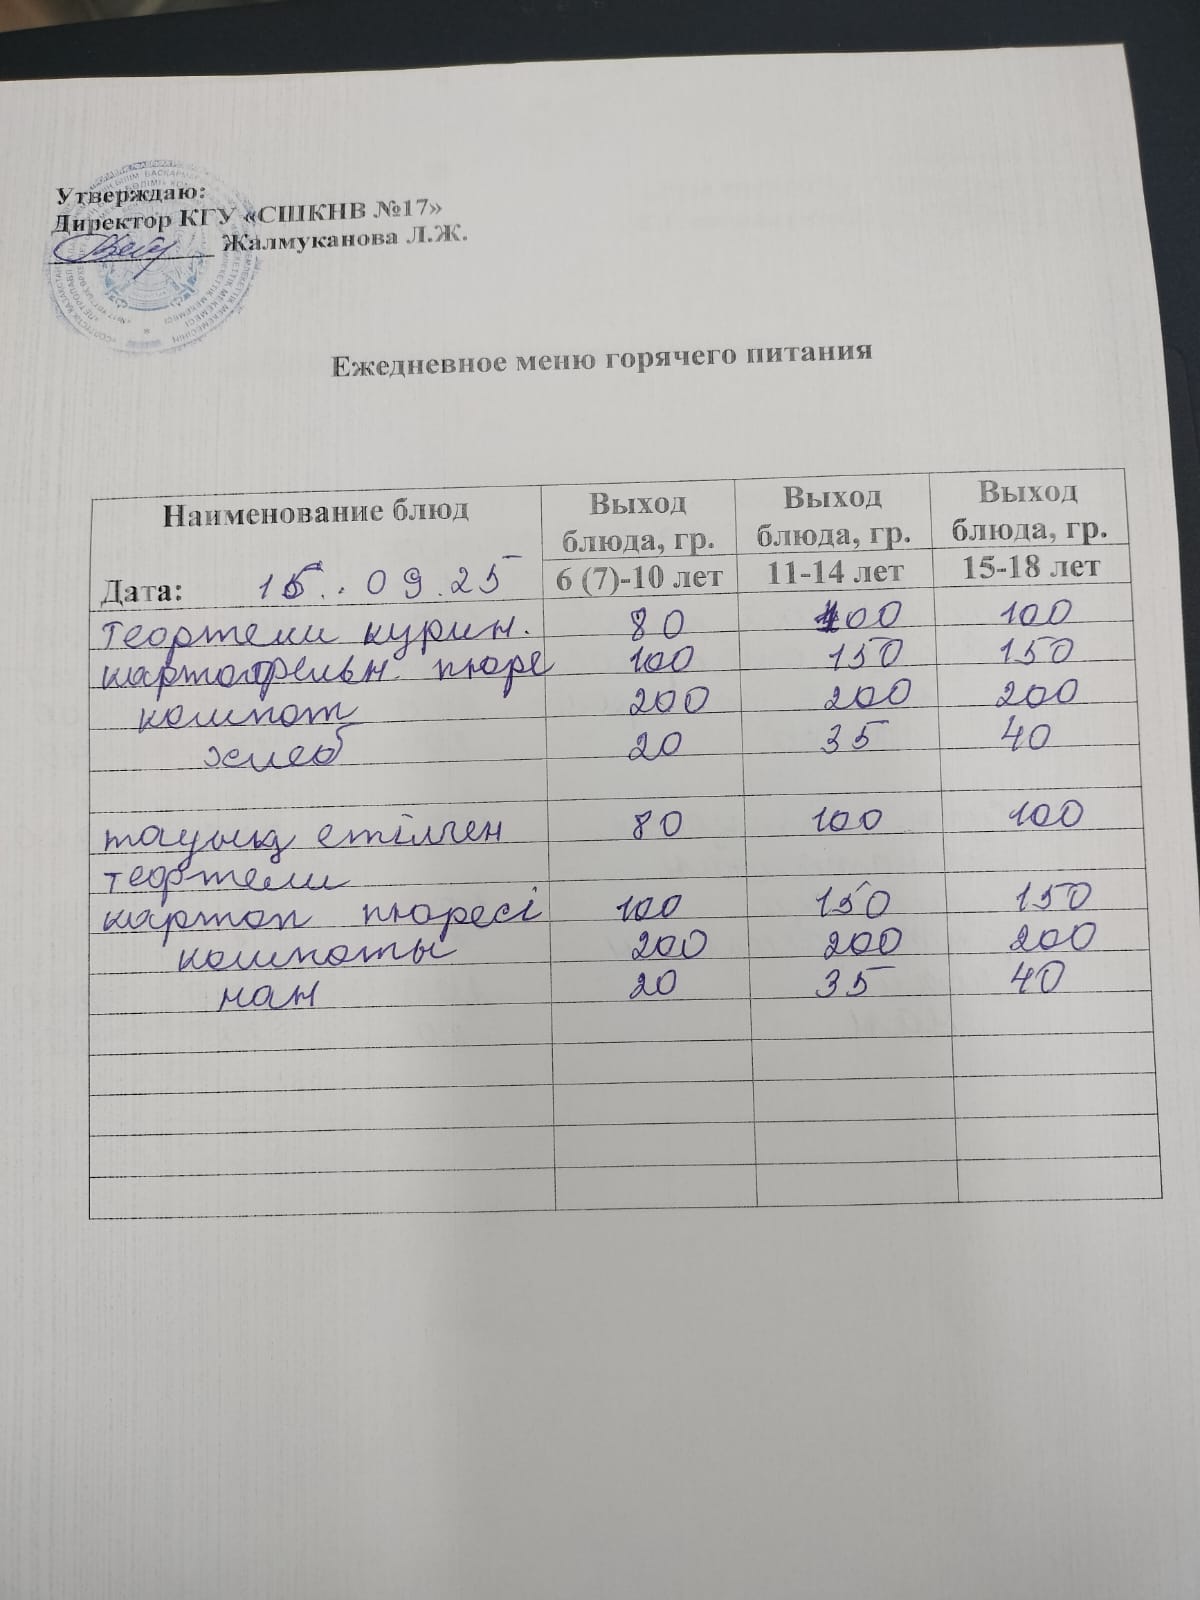 Утверждаю:
Директор КГУ «СШКНВ №17»
Жалмуканова Л.Ж.
Ежедневное меню горячего питания
Наименование блюд Выход блюда, гр. Выход блюда, гр. Выход блюда, гр.
Дата: 15.09.25 6 (7)-10 лет 11-14 лет 15-18 лет
тефтели курин. 80 100 100
картофельн. пюре 100 150 150
компот 200 200 200
хлеб 20 35 40
тауық етілген 80 100 100
тефтели
картоп пюресі 100 150 150
компоты 200 200 200
нан 20 35 40